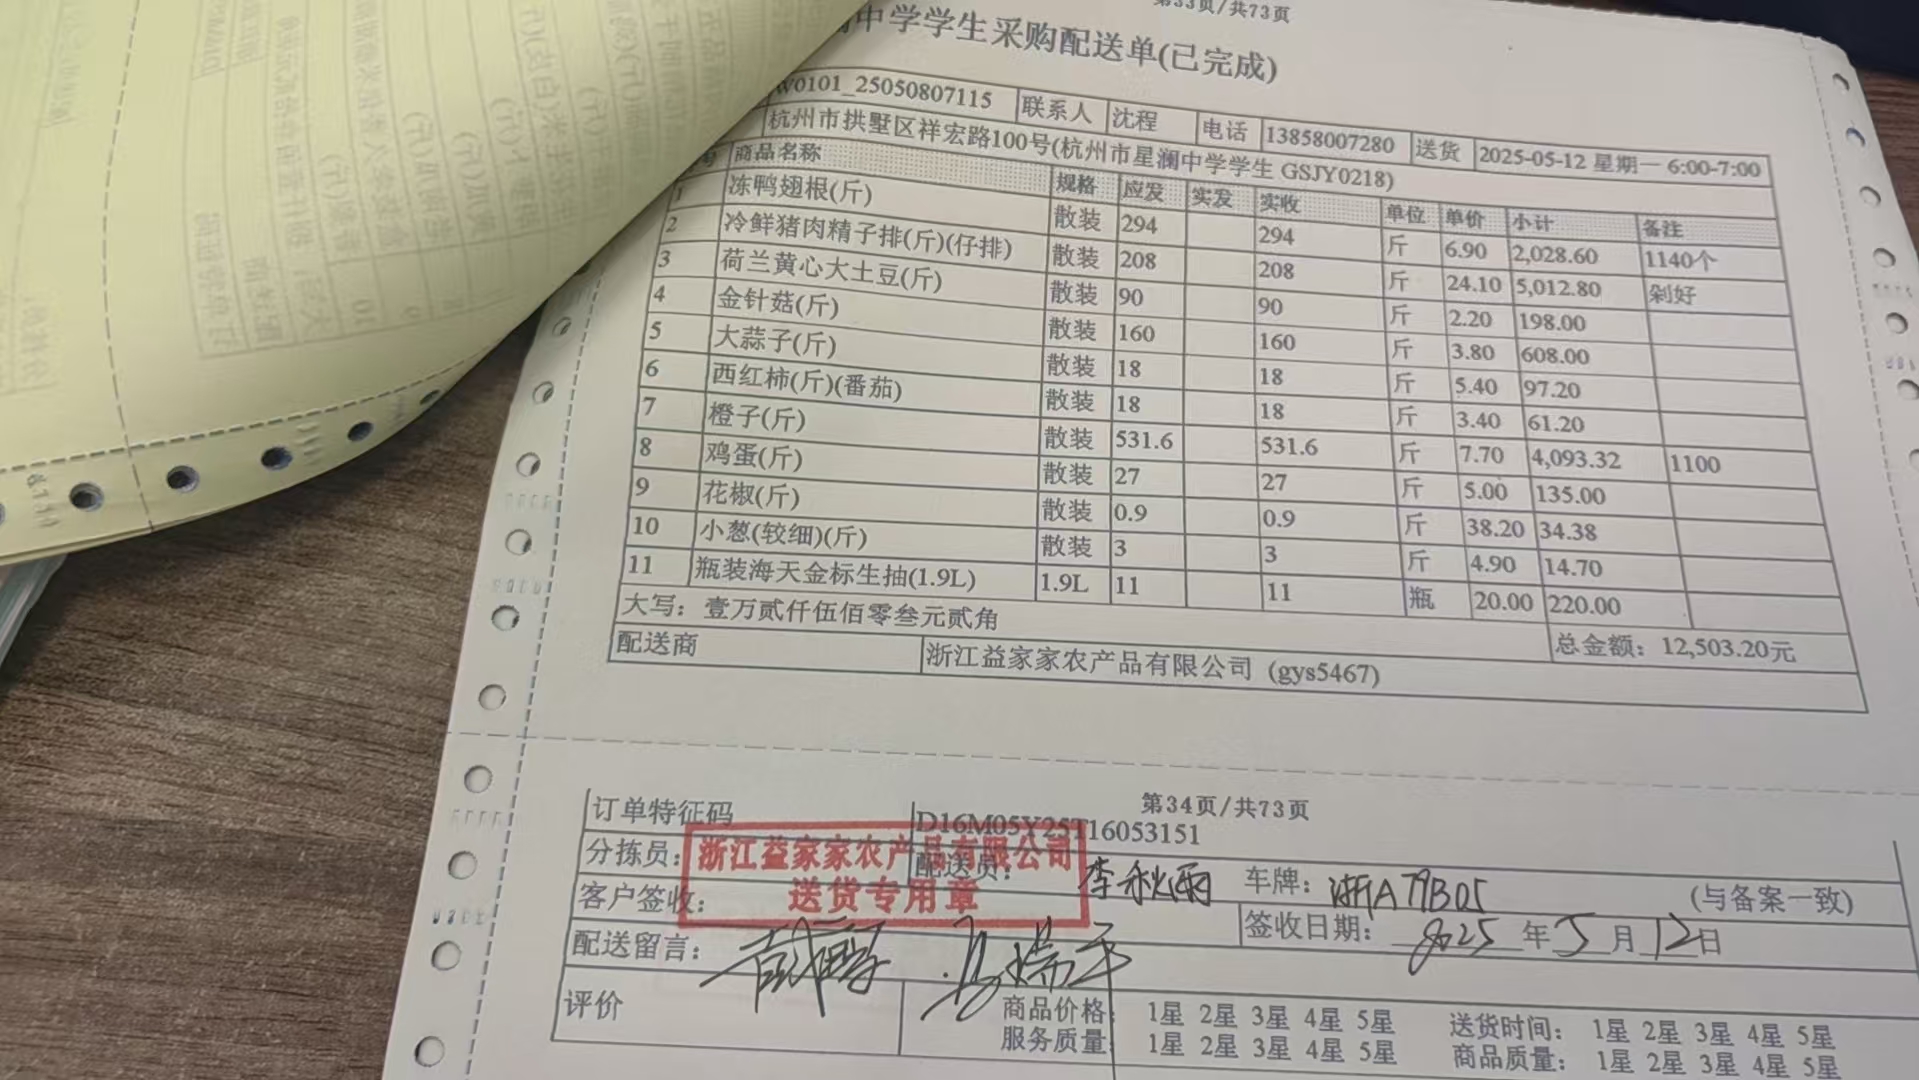 第33页/共73页
中学学生采购配送单(已完成)
W0101_25050807115 联系人 沈程 电话 13858007280 送货 2025-05-12 星期一 6:00-7:00
杭州市拱墅区祥宏路100号(杭州市星澜中学学生 GSJY0218)
号 商品名称 规格 应发 实发 实收 单位 单价 小计 备注
1 冻鸭翅根(斤) 散装 294 294 斤 6.90 2,028.60 1140个
2 冷鲜猪肉精子排(斤)(仔排) 散装 208 208 斤 24.10 5,012.80 剁好
3 荷兰黄心大土豆(斤) 散装 90 90 斤 2.20 198.00
4 金针菇(斤) 散装 160 160 斤 3.80 608.00
5 大蒜子(斤) 散装 18 18 斤 5.40 97.20
6 西红柿(斤)(番茄) 散装 18 18 斤 3.40 61.20
7 橙子(斤) 散装 531.6 531.6 斤 7.70 4,093.32 1100
8 鸡蛋(斤) 散装 27 27 斤 5.00 135.00
9 花椒(斤) 散装 0.9 0.9 斤 38.20 34.38
10 小葱(较细)(斤) 散装 3 3 斤 4.90 14.70
11 瓶装海天金标生抽(1.9L) 1.9L 11 11 瓶 20.00 220.00
大写：壹万贰仟伍佰零叁元贰角 总金额：12,503.20元
配送商 浙江益家家农产品有限公司 (gys5467)
第34页/共73页
订单特征码 D16M05Y25T16053151
分拣员： 配送员： 李秋雨 车牌： 浙A79B05 (与备案一致)
浙江益家家农产品有限公司
送货专用章
客户签收： 签收日期： 2025 年 5 月 12 日
配送留言：
评价 商品价格： 1星 2星 3星 4星 5星 送货时间： 1星 2星 3星 4星 5星
服务质量： 1星 2星 3星 4星 5星 商品质量： 1星 2星 3星 4星 5星